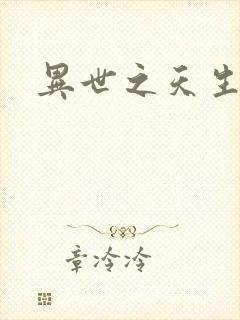 異世之天生
章冷冷